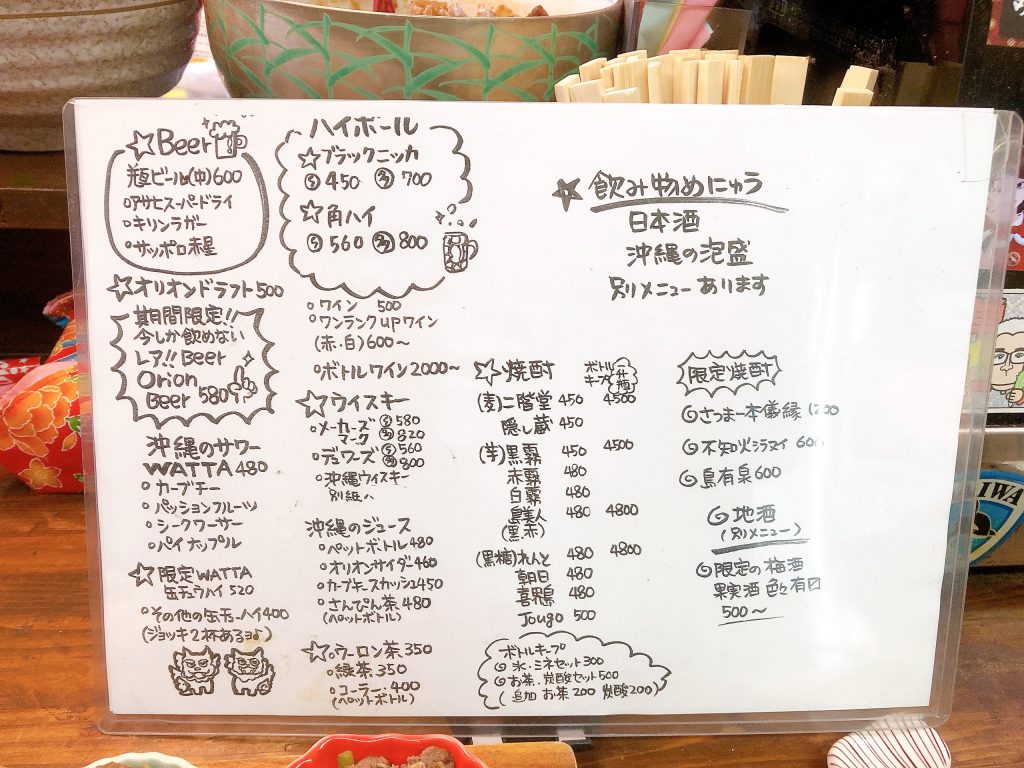 ☆Beer
瓶ビール(中)600
○アサヒスーパードライ
○キリンラガー
○サッポロ赤星
☆オリオンドラフト500
期間限定!!
今しか飲めない
レア!! Beer
Orion
Beer 580
沖縄のサワー
WATTA 480
○カーブチー
○パッションフルーツ
○シークワーサー
○パイナップル
☆限定WATTA
缶チュウハイ 520
○その他の缶チューハイ400
(ジョッキ2杯あるヨ♪)
ハイボール
☆ブラックニッカ
450 700
☆角ハイ
560 800
○ワイン 500
○ワンランクupワイン
(赤・白)600〜
○ボトルワイン2000〜
☆ウイスキー
○メーカーズマーク 580
820
○デュワーズ 560
800
○沖縄ウイスキー
別紙へ
沖縄のジュース
○ペットボトル480
○オリオンサイダー460
○カーブチースカッシュ450
○さんぴん茶 480
(ペットボトル)
☆○ウーロン茶350
○緑茶350
○コーラ…400
(ペットボトル)
☆飲み物めにゅう
日本酒
沖縄の泡盛
別メニューあります
☆焼酎 ボトルキープ
(麦)二階堂 450 4500
隠し蔵 450
(芋)黒霧 450 4500
赤霧 480
白霧 480
島美人 480 4800
(黒赤)
(黒糖)れんと 480 4800
朝日 480
喜界島 480
Jougo 500
ボトルキープ
◎氷・ミネセット300
◎お茶・炭酸セット500
(追加 お茶200 炭酸200)
限定焼酎
◎さつま一本儀縁 1200
◎不知火シラヌイ 600
◎島有泉600
◎地酒
(別メニュー)
◎限定の梅酒
果実酒 色々有り
500〜